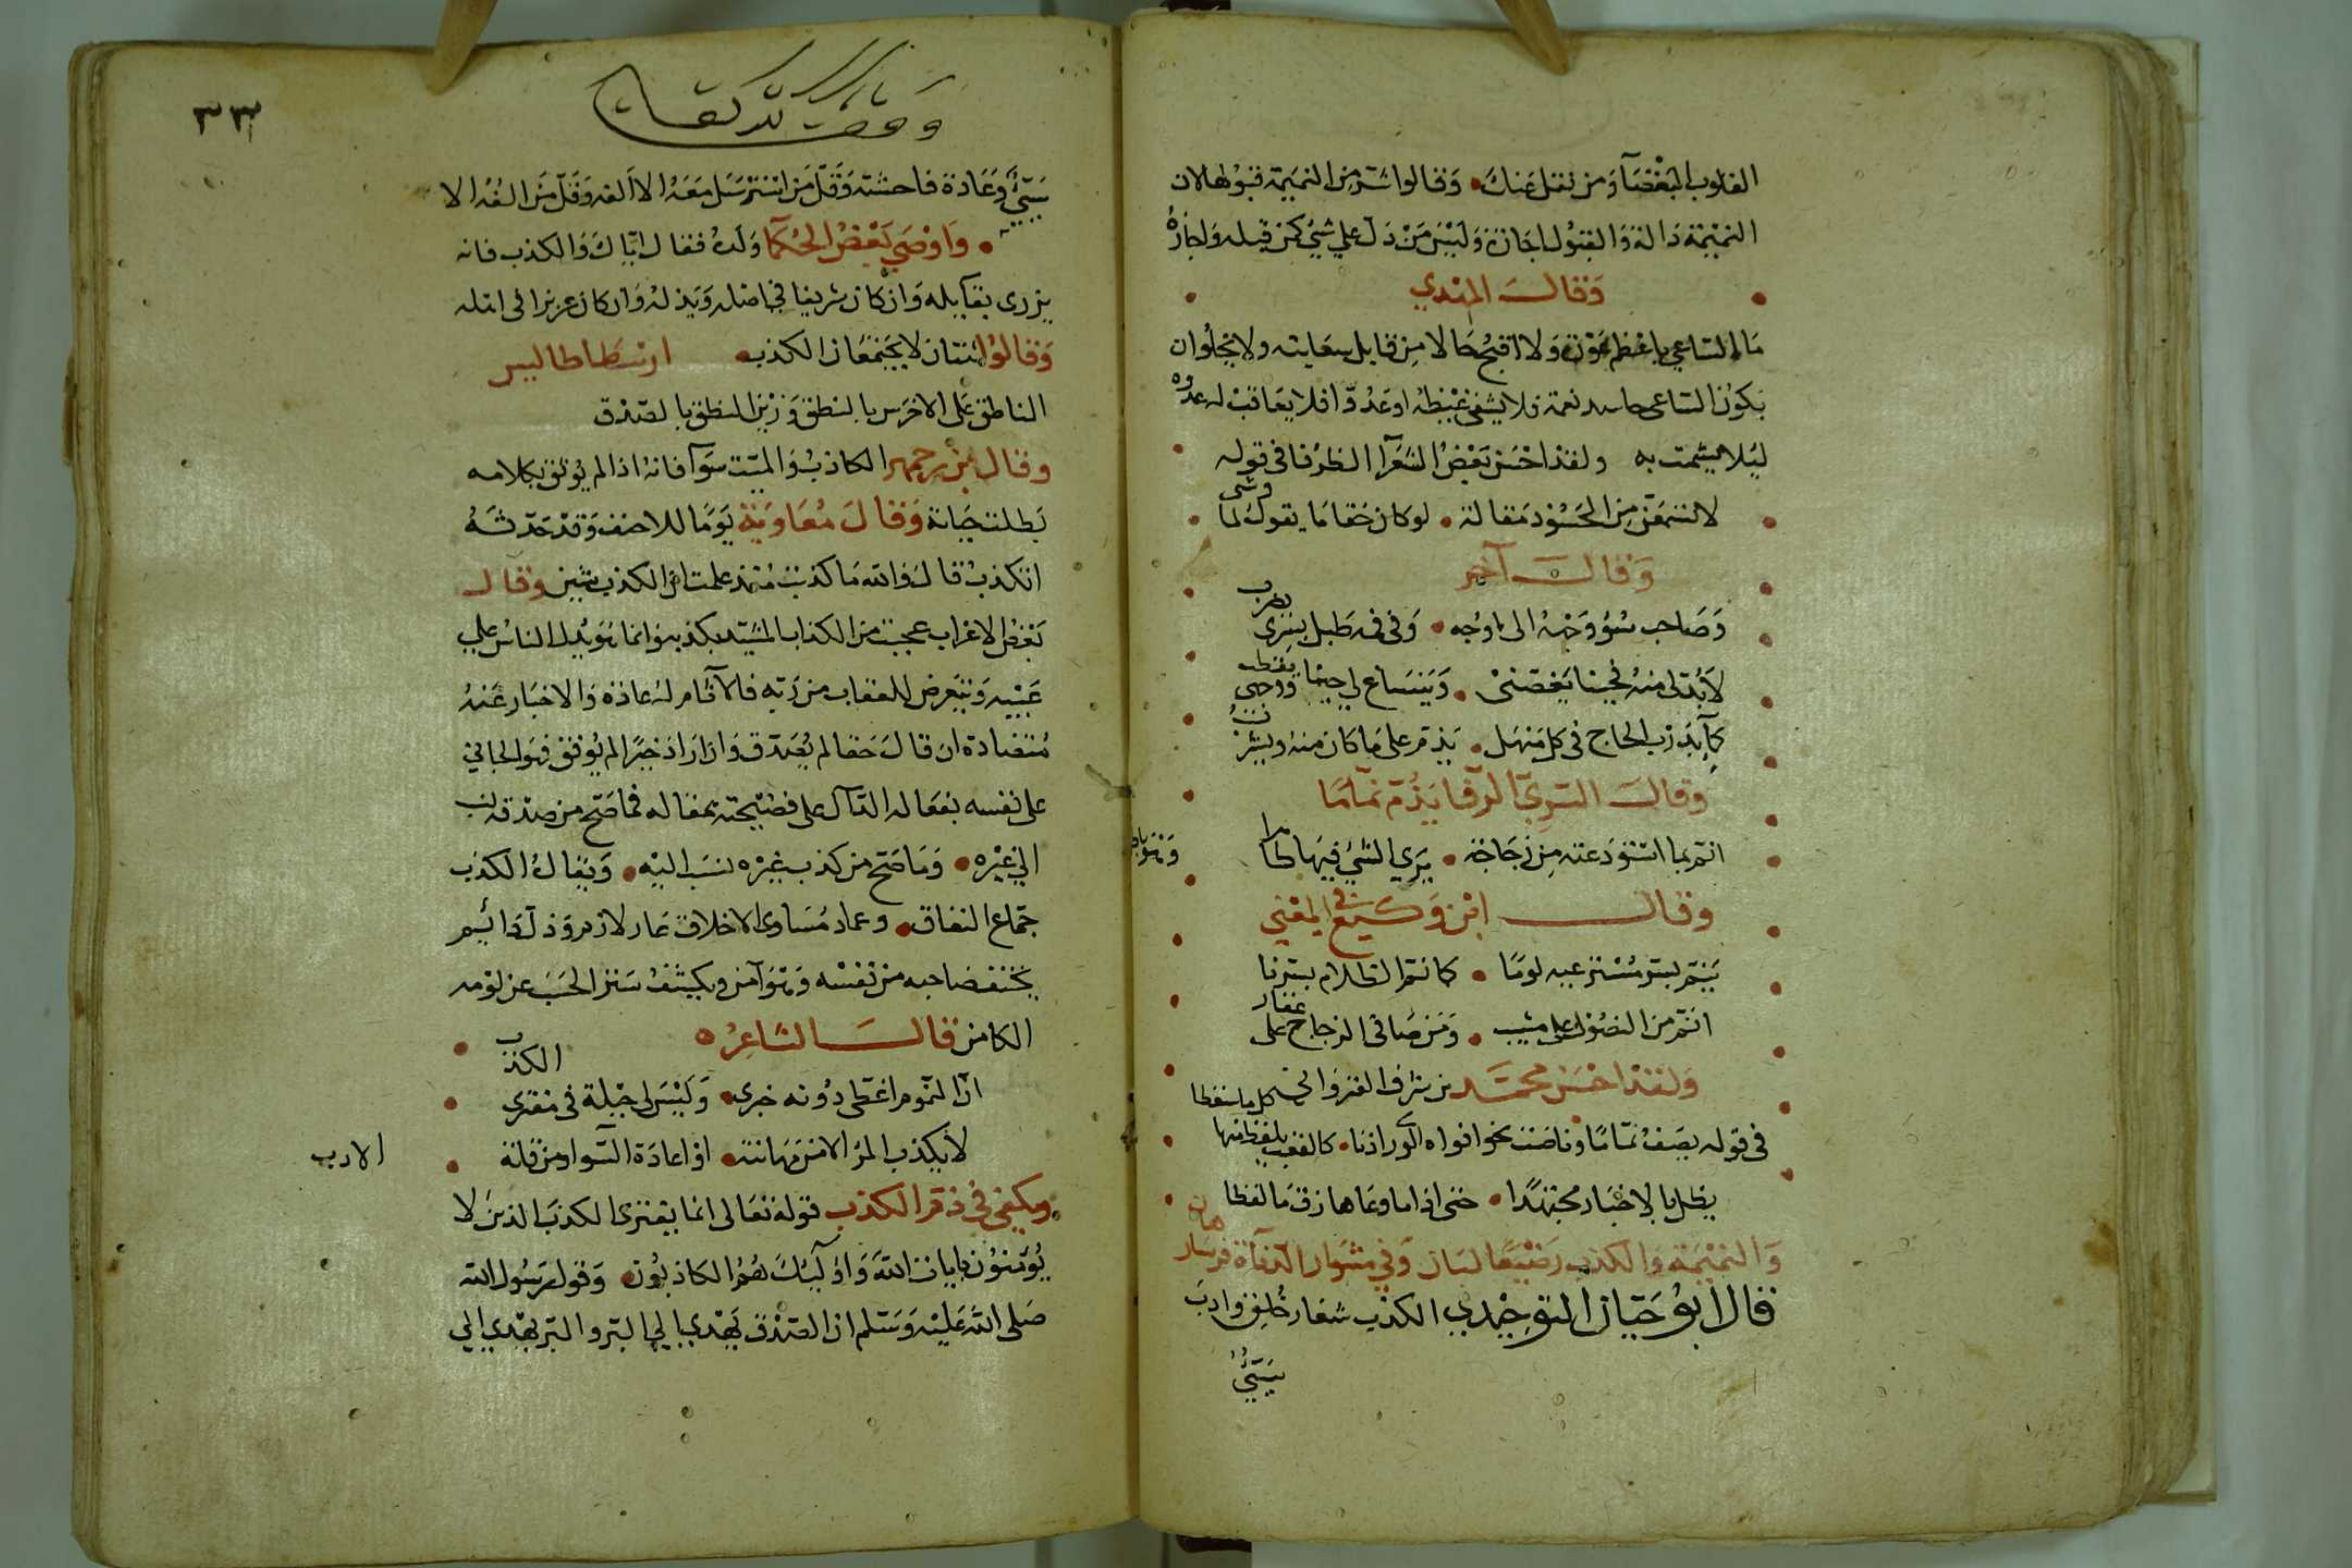 القلوب البغضآ ومن نقل عنك وقالوا شر من النميمة قبولها لان
النميمة دالة والقبول اجازة وليس من دل علي شيء كمن قبله واجازه
وقالت الهندي
ما الساعي باعظم ولا اقبح حالا من قابل سعايته ولا يخلوا ان
يكون الساعي حاسد نعمة فلا يشفى غيظه او عدوا فلا يعاقب له عدوه
ليلا يشمت به ولقد احسن بعض الشعرآ الظرفا في قوله
لا تسمعن من الحسود مقالة لو كان حقا ما يقول لما وشى
وقال آخر
وصاحب سوء وجهه الى اوجه وفي فمه طبل بسري يضرب
ولا بد لي منه فحينا يغصني وينساغ لي حينا ووجهي يقطب
كمآء درب الحاج في كل منهل يذم على ما كان منه ويشرب
وقال السري الرفا يذم نماما
انم بما استودعته من زجاجة يرى الشيء فيها ظاهرا وهو باطن
وقال ابن وكيع في المعنى
ينم بسر مسترعيه لوما كما نم الظلام بسر نار
انم من النصول على مشيب ومن صافي الزجاج على عقار
ولقد احسن محمد بن شرف القيرواني
في قوله يصف نماما وناصت نحو افواه الورى اذنا كالقعب يلقط منها كل ما سقطا
يظل بالاخبار مجتهدا حتى اذا ما وعاها زق ما لقطا
والنميمة والكذب رضيعا لبان وفي مشوار الدنآة فرسا رهان
قال ابو حيان التوحيدي الكذب شعار خلق وادب
سيئ
٣٣
سيئ وعادة فاحشة وقل من استرسل معه الا الفه وقل من الفه الا
واوصى بعض الحكمآ ولده فقال اياك والكذب فانه
يزري بقآيله وان كان شريفا في اصله ويذله وان كان عزيزا في اهله
وقالوا اثنتان لا يجتمعان الكذب ارسطاطاليس
الناطق على الاخرس بالنطق وزين النطق بالصدق
وقال بزرجمهر الكاذب والميت سوآ فانه اذا لم يوثق بكلامه
بطلت حياته وقال معاوية يوما للاحنف وقد حدثه
اتكذب قال والله ما كذبت منذ علمت ان الكذب شين وقال
بعض الاعراب عجبت من الكذاب المشيد بكذبه وانما هو يدل الناس علي
عيبه ويتعرض للعقاب من ربه فالآثام له عادة والاخبار عنه
متضادة ان قال حقا لم يصدق وان اراد خيرا لم يوفق فهو الجاني
على نفسه بفعاله الدآل على فضيحته بمقاله فما صح من صدقه نسب
الي غيره وما صح من كذب غيره نسب اليه ويقال الكذب
جماع النفاق وعماد مساوي الاخلاق عار لازم وذل دايم
يخيف صاحبه من نفسه وهو آمن ويكشف ستر الحسب عن لومه
الكامن قال الشاعر
ان النموم اغطى دونه خبري وليس لي حيلة في مفتري الكذب
لا يكذب المرء الا من مهانته او اعادة السوا ومن قلة الادب
ويكفي في ذم الكذب قوله تعالى انما يفتري الكذب الذين لا
يؤمنون بايات الله واولآئك هم الكاذبون وقول رسول الله
صلى الله عليه وسلم ان الصدق يهدي الي البر والبر يهدي الي